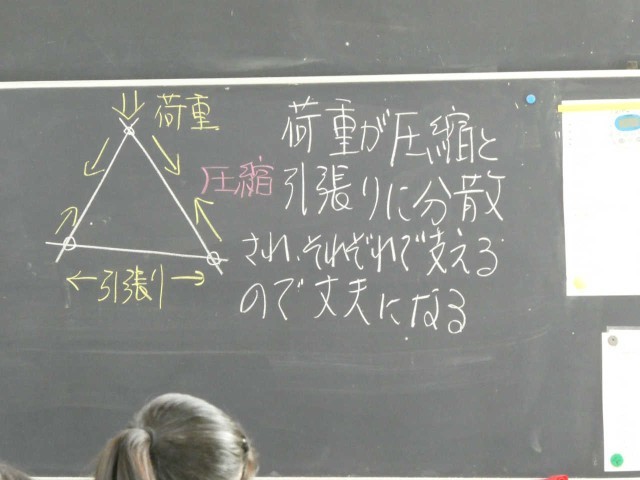 荷重
圧縮
引張り
荷重が圧縮と
引張りに分散
され、それぞれで支える
ので丈夫になる